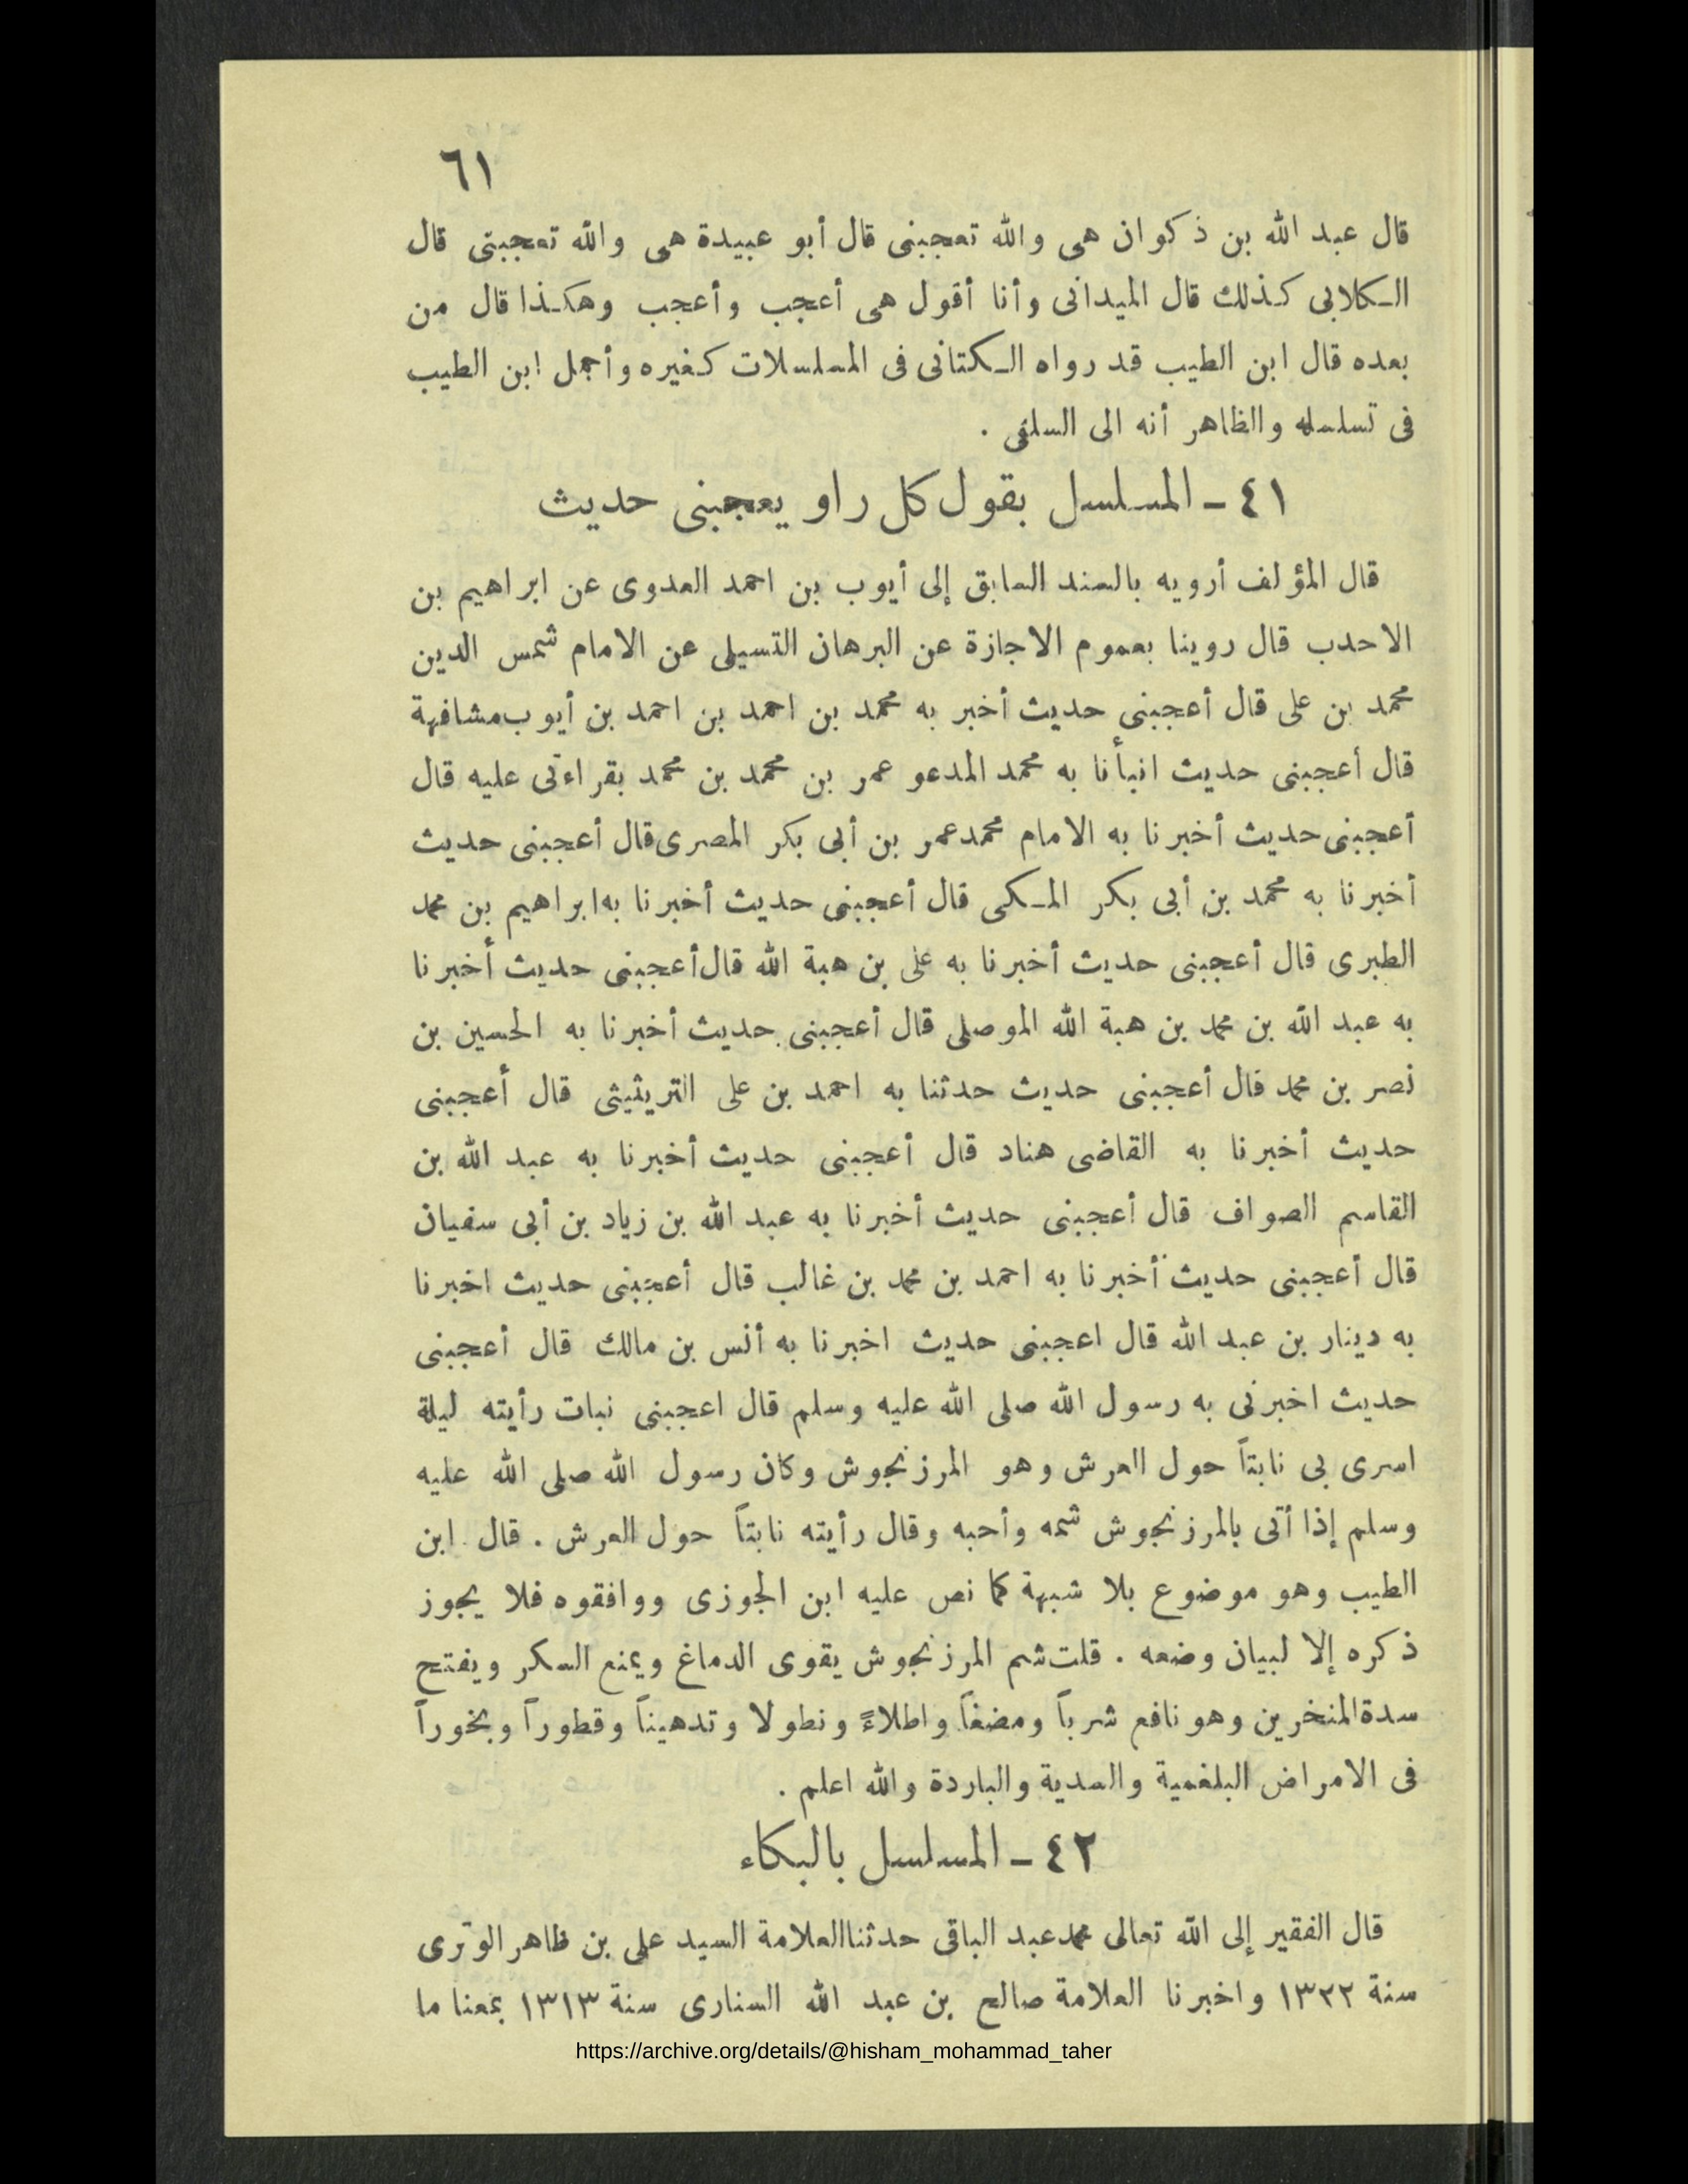 ٦١
قال عبد الله بن ذكوان هى والله تعجبنى قال أبو عبيدة هى والله تعجبنى قال
الكلابى كذلك قال الميدانى وأنا أقول هى أعجب وأعجب وهكذا قال من
بعده قال ابن الطيب قد رواه الكتانى فى المسلسلات كغيره وأجمل ابن الطيب
فى تسلسله والظاهر أنه الى السلفى .
٤١ - المسلسل بقول كل راو يعجبنى حديث
قال المؤلف أرويه بالسند السابق إلى أيوب بن احمد العدوى عن ابراهيم بن
الاحدب قال روينا بعموم الاجازة عن البرهان التسيلى عن الامام شمس الدين
محمد بن على قال أعجبنى حديث أخبر به محمد بن احمد بن احمد بن أيوب مشافهة
قال أعجبنى حديث انبأنا به محمد المدعو عمر بن محمد بن محمد بقراءتى عليه قال
أعجبنى حديث أخبرنا به الامام محمد عمر بن أبى بكر المصرى قال أعجبنى حديث
أخبرنا به محمد بن أبى بكر المكى قال أعجبنى حديث أخبرنا به ابراهيم بن محمد
الطبرى قال أعجبنى حديث أخبرنا به على بن هبة الله قال أعجبنى حديث أخبرنا
به عبد الله بن محمد بن هبة الله الموصلى قال أعجبنى حديث أخبرنا به الحسين بن
نصر بن محمد قال أعجبنى حديث حدثنا به احمد بن على التريثيثى قال أعجبنى
حديث أخبرنا به القاضى هناد قال أعجبنى حديث أخبرنا به عبد الله بن
القاسم الصواف قال أعجبنى حديث أخبرنا به عبد الله بن زياد بن أبى سفيان
قال أعجبنى حديث أخبرنا به احمد بن محمد بن غالب قال أعجبنى حديث اخبرنا
به دينار بن عبد الله قال اعجبنى حديث اخبرنا به أنس بن مالك قال أعجبنى
حديث اخبرنى به رسول الله صلى الله عليه وسلم قال اعجبنى نبات رأيته ليلة
اسرى بى نابتاً حول العرش وهو المرزنجوش وكان رسول الله صلى الله عليه
وسلم إذا أتى بالمرزنجوش شمه وأحبه وقال رأيته نابتاً حول العرش . قال ابن
الطيب وهو موضوع بلا شبهة كما نص عليه ابن الجوزى ووافقوه فلا يجوز
ذكره إلا لبيان وضعه . قلت شم المرزنجوش يقوى الدماغ ويمنع السكر ويفتح
سدة المنخرين وهو نافع شرباً ومضغاً واطلاءً ونطولا وتدهيناً وقطوراً وبخوراً
فى الامراض البلغمية والسدية والباردة والله اعلم .
٤٢ - المسلسل بالبكاء
قال الفقير إلى الله تعالى محمد عبد الباقى حدثنا العلامة السيد على بن ظاهر الوترى
سنة ١٣٢٢ واخبرنا العلامة صالح بن عبد الله السنارى سنة ١٣١٣ بمعنا ما
https://archive.org/details/@hisham_mohammad_taher